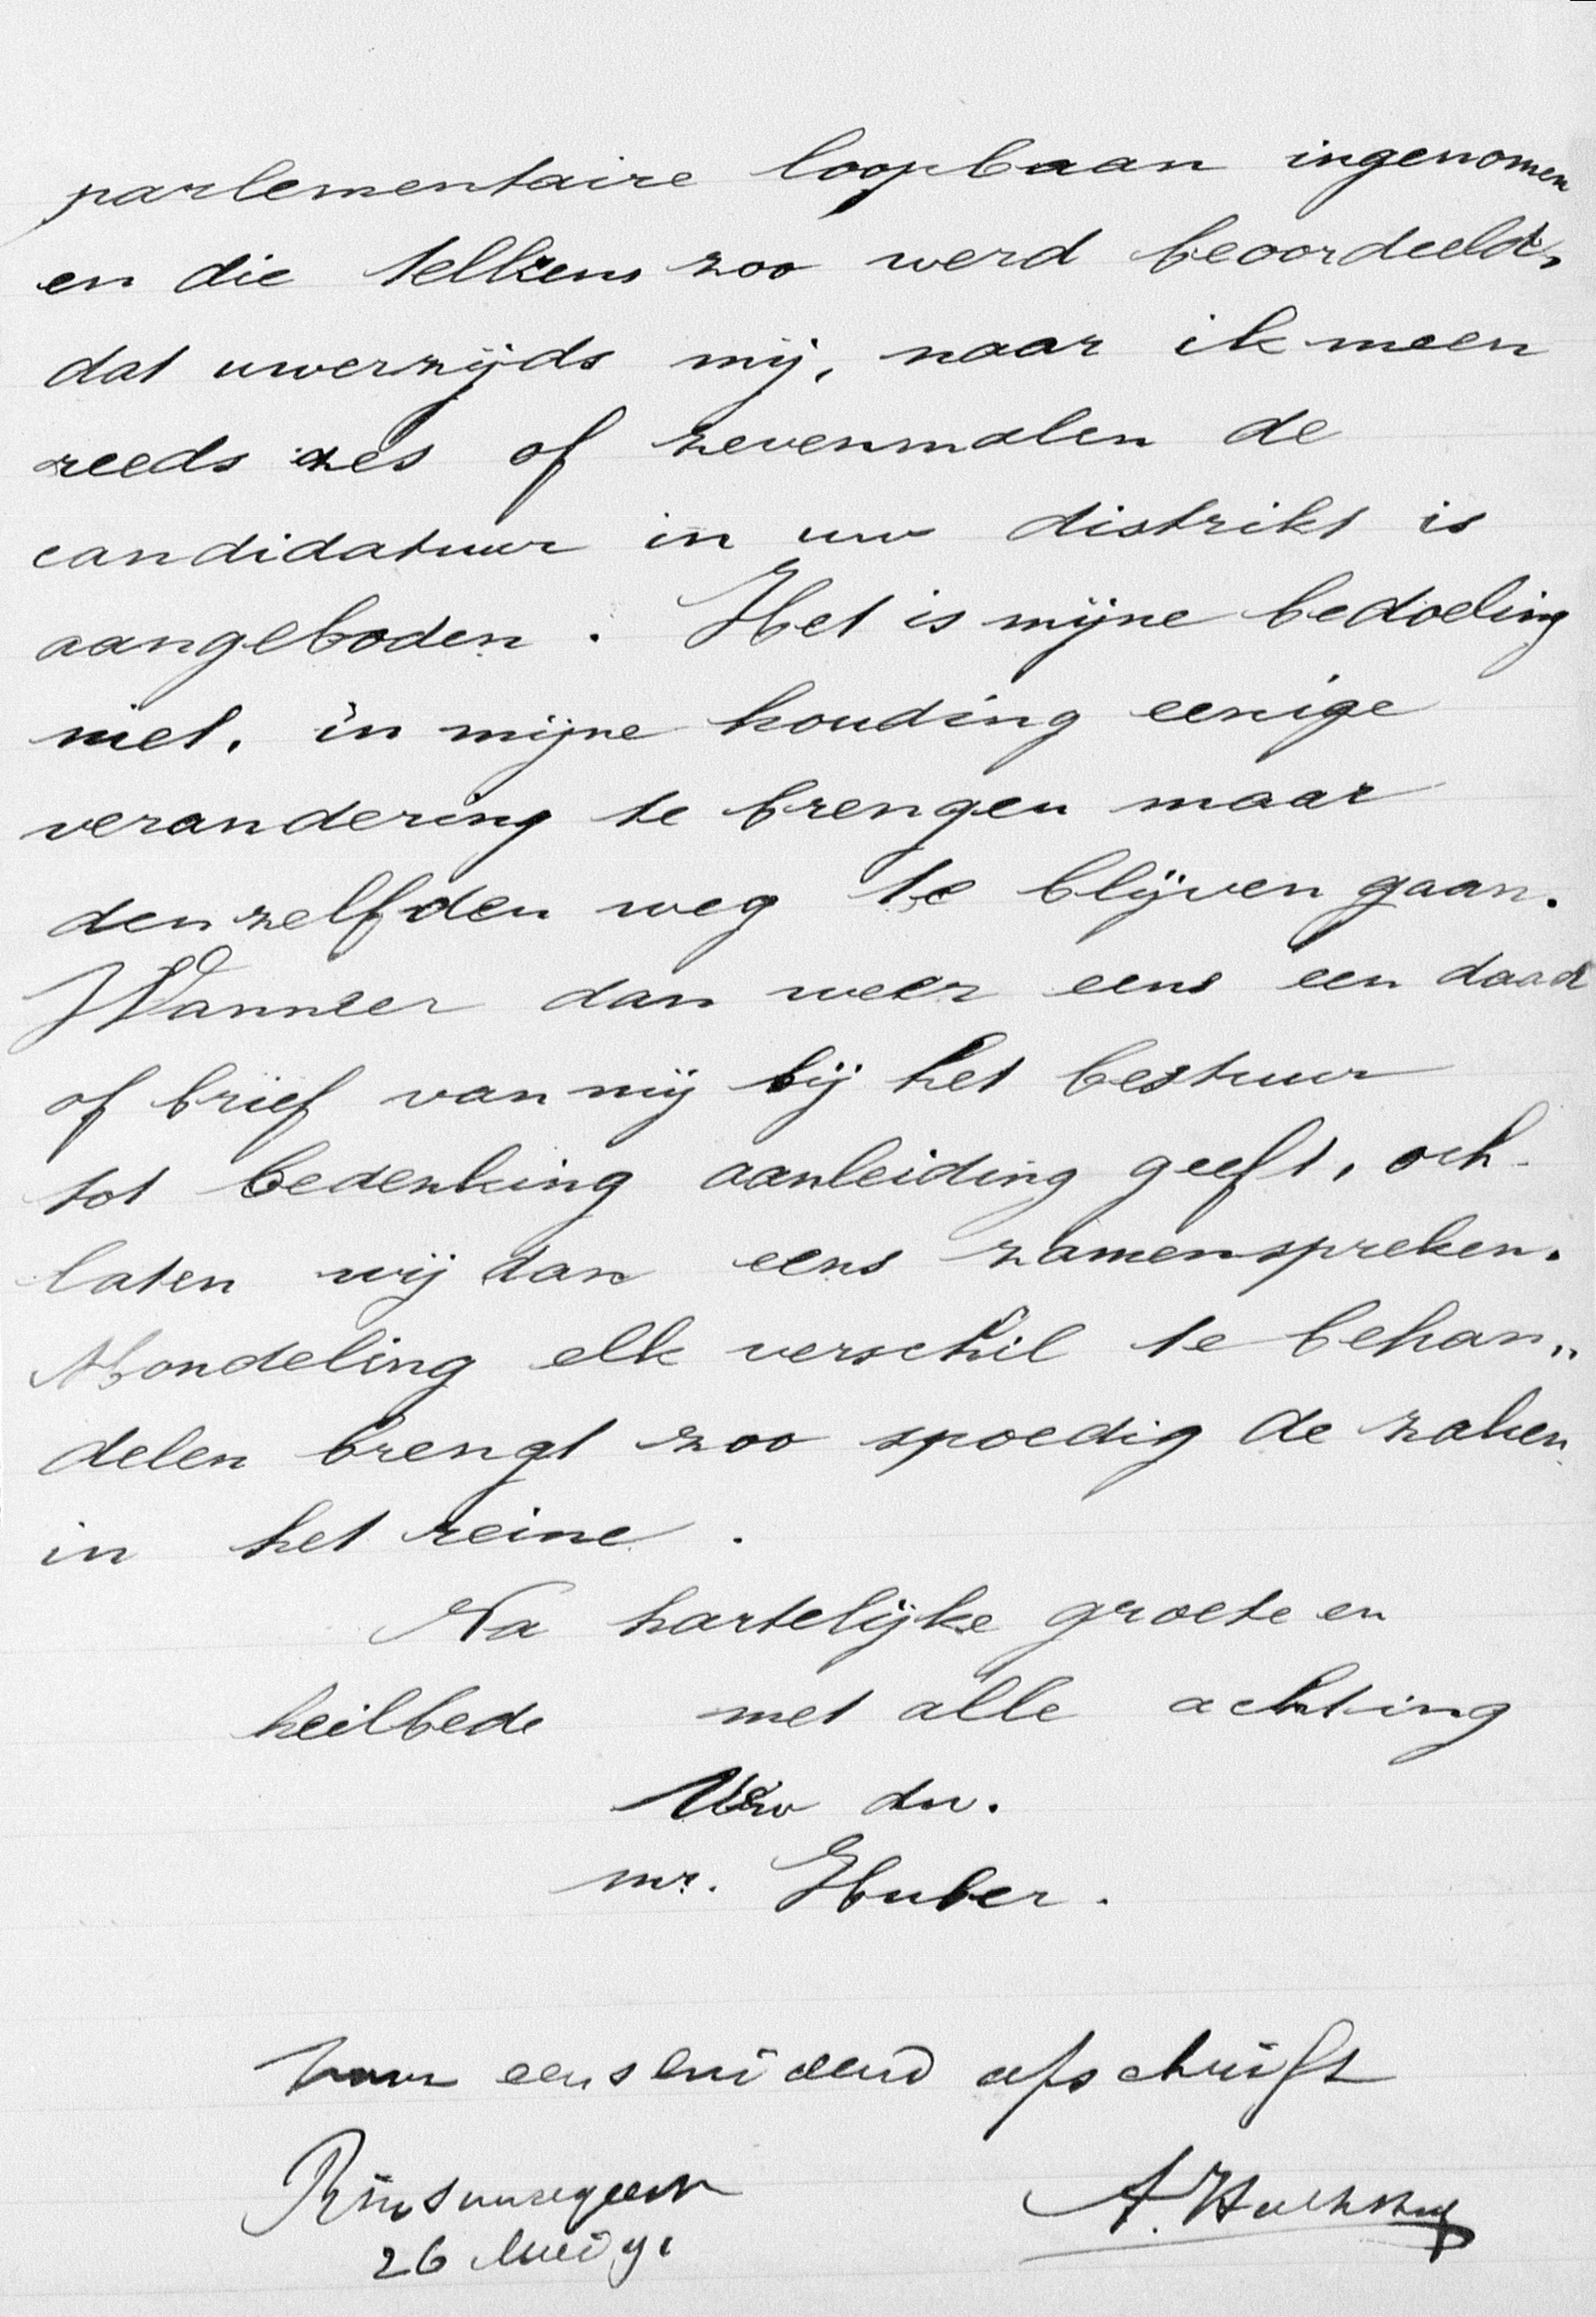 parlementaire loopbaan ingenomen
en die telkens zoo werd beoordeeld,
dat uwerzijds mij, naar ik meen
reeds zes of zevenmalen de
candidatuur in uw distrikt is
aangeboden. Het is mijne bedoeling
niet, in mijne houding eenige
verandering te brengen maar
denzelfden weg te blijven gaan.
Wanneer dan weer eens een daad
of brief van mij bij het bestuur
tot bedenking aanleiding geeft, och
laten wij dan eens zamenspreken.
Mondeling elk verschil te behan„
delen brengt zoo spoedig de zaken
in het reine.
Na hartelijke groete en
heilbede met alle achting
Uw dn.
mr. Huber.
Voor eensluidend afschrift
26 Mei 91